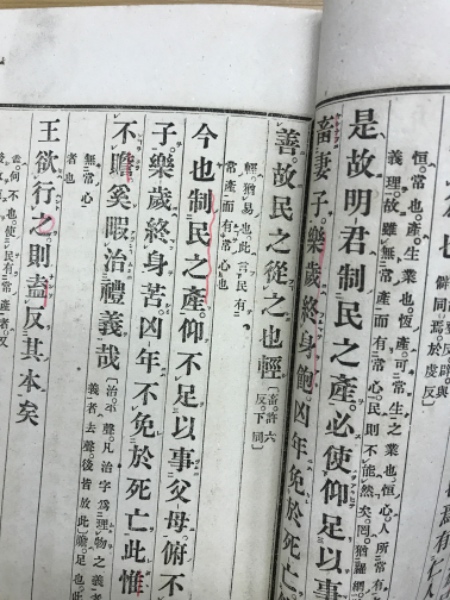 恒。常也。產。生業也。恆產。可常生之業也。恒心。人所常有
義理。故雖無常產而有常心。民則不能然矣。罔。猶羅網。
是故明君制民之產。必使仰足以事
畜妻子。樂歲終身飽。凶年免於死亡
善。故民之從之也輕〔畜。許六反。下同〕
輕猶易也。此言民有常產而有常心也
今也制民之產。仰不足以事父母。俯不
子。樂歲終身苦。凶年不免於死亡。此惟
不贍。奚暇治禮義哉〔治。平聲。凡治字爲理物之義者。去聲。後皆放此。贍。足也。此
無常心者也
王欲行之。則盍反其本矣
盍。何不也。使民有常產者。又